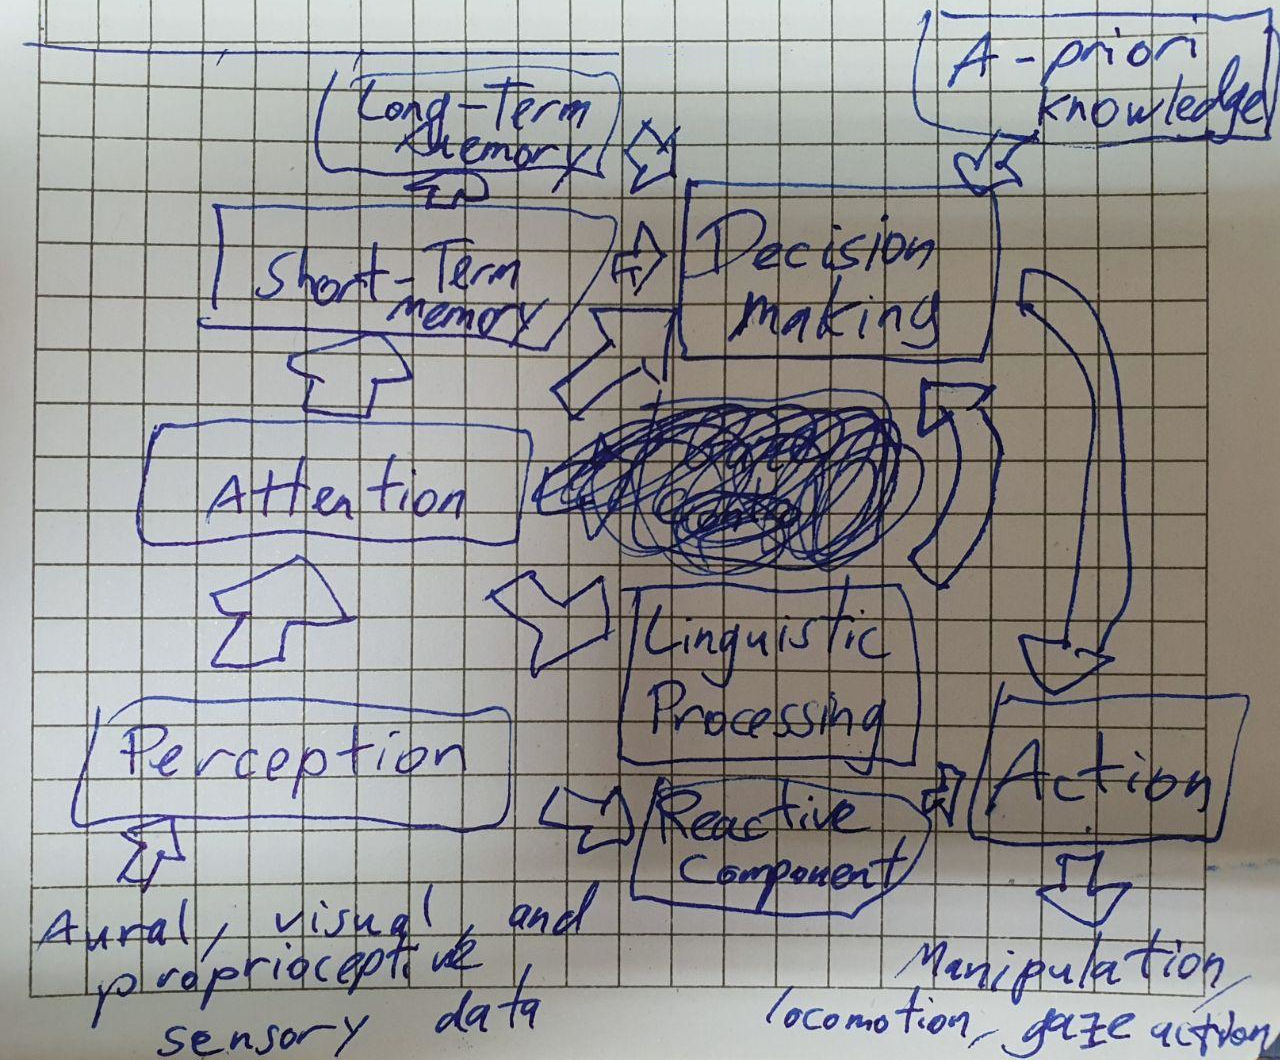 A-priori
knowledge
Long-Term
Memory
Short-Term
memory
Decision
making
Attention
Linguistic
Processing
Perception
Action
Reactive
Component
Aural, visual, and
proprioceptive
sensory data
Manipulation,
locomotion, gaze action